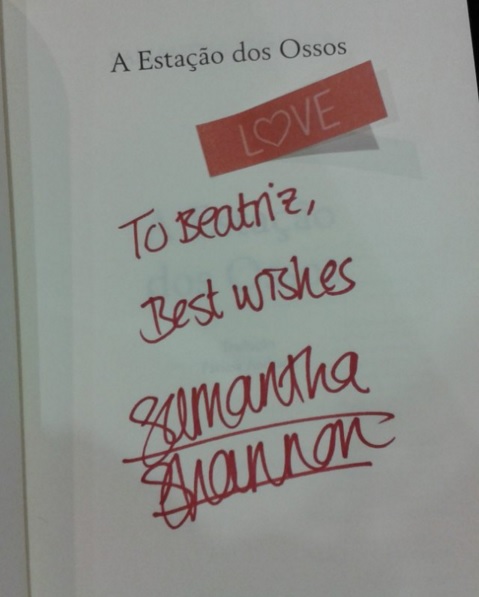 A Estação dos Ossos
L♡VE
To Beatriz,
Best wishes
Samantha
Shannon